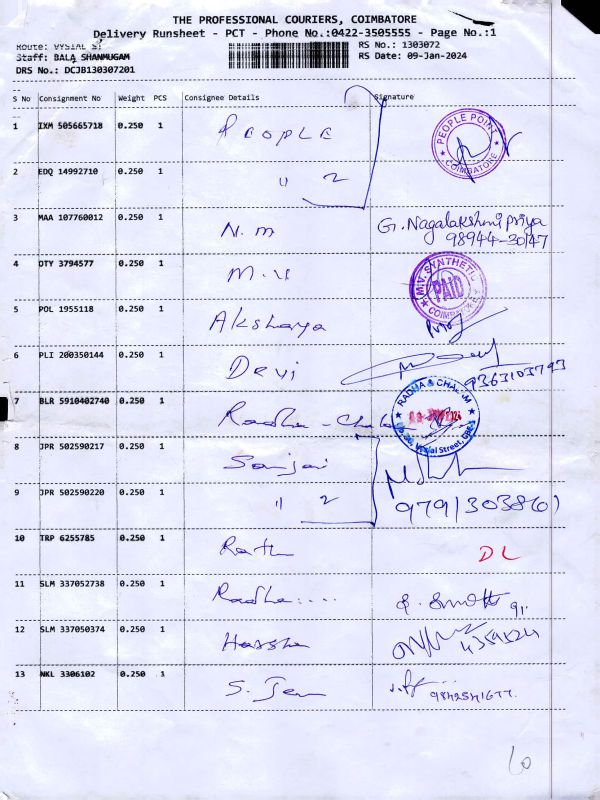 THE PROFESSIONAL COURIERS, COIMBATORE
Delivery Runsheet - PCT - Phone No.:0422-3505555 - Page No.:1
Route: VYSIAL ST
RS No.: 1303072
Staff: BALA SHANMUGAM
RS Date: 09-Jan-2024
DRS No.: DCJB130307201
S No Consignment No Weight PCS Consignee Details Signature
1 IXM 505665718 0.250 1 PEOPLE PEOPLE POINT COIMBATORE
2 EDQ 14992710 0.250 1 " 2
3 MAA 107760012 0.250 1 N.M G. Nagalakshmi Priya
98944-30147
4 DTY 3794577 0.250 1 M.V M.V. SYNTHETIC PAID
5 POL 1955118 0.250 1 Akshaya
6 PLI 200350144 0.250 1 Devi
9363103793
7 BLR 5910402740 0.250 1 Radha - RADHA & CHALAM
8 JPR 502590217 0.250 1 Sanjai
9 JPR 502590220 0.250 1 " 2
10 TRP 6255785 0.250 1 DL
11 SLM 337052738 0.250 1 Radha....
12 SLM 337050374 0.250 1 Harsha
13 NKL 3306102 0.250 1 S.